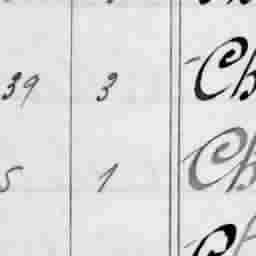 39 3 Ch
5 1 Ch